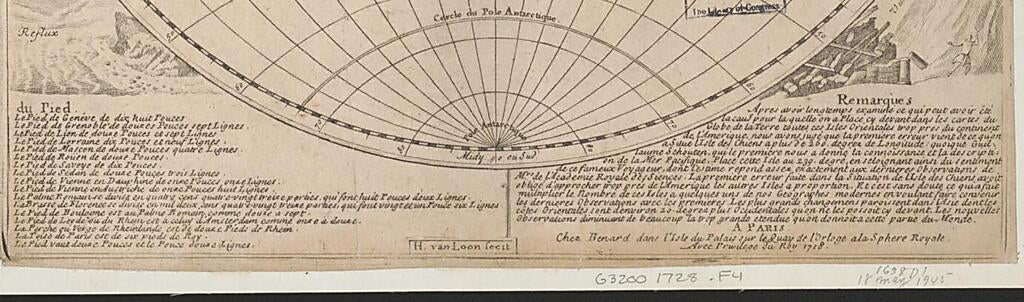 Cercle du Pole Antarctique
The Library of Congress
Reflux
80
80
70
70
Pole Antarctique
Midy ou Sud
du Pied.
Le Pied de Geneve de dix huit Pouces
Le Pied de Grenoble de douze Pouces sept Lignes.
Le Pied de Lion de douze Pouces et sept Lignes
Le Pied de Lorraine dix Pouces et neuf Lignes.
Le Pied de Mascon de douze Pouces quatre Lignes.
Le Pied de Rouen de douze Pouces.
Le Pied de Savoye de dix Pouces.
Le Pied de Sedan de douze Pouces trois Lignes.
Le Pied de Vienne en Dauphine de onze Pouces onze Lignes.
Le Pied de Vienne en Austriche onze Pouces huit Lignes.
Le Palme Romain divisés en quatre cens quatre vingt treize parties, qui font huit Pouces deux Lignes.
La Brasse de Florence divisés en mil deux cens quatre vingt treize parties, qui font vingt et un Pouce six Lignes.
Le Pied de Boulogne est au Palme Romain, comme douze a sept.
Le Pied de Leyde ou du Rhein est a celuy d'Amsterdam comme onze a douze.
La Perche ou Verge de Rheinlande est de douze Pieds de Rhein.
La Toise de Paris est de six pieds de Roy.
Le Pied vaut douze Pouces et le Pouce douze Lignes.
H. van Loon fecit
Remarques
Apres avoir longtemps examiné ce qui peut avoir été
la cause pour laquelle on a Placé cy devant dans les cartes du
Globe de la Terre toutes ces Isles Orientales trop pres du continent
de l'Amerique, nous avons jugé que la premiere erreur vient de ce quon
a Situé l'Isle des Chiens a plus de 260. degrez de Longitude; quoique Guil-
laume Schouten, qui le premier nous a donné la connoissance et la description
on de la Mer Pacifique, Place cette Isle au 239. degré, en seloignant ainsi du sentiment
de ce fameux Voyageur, dont l'estime repond assez exactement aux dernieres Observations de
Mrs. de l'Academie Royale des Sciences. La premiere erreur faite dans la Situation de l'Isle des Chiens, avoit
obligé d'approcher trop pres de l'Amerique les autres Isles a proportion. Et cest sans doute ce qui a fait
multiplier le Nombre de ces Isles a quelques uns de nos Geographes modernes en voulant faire convenir
les dernieres Observations avec les premieres. Les plus grands changemens paroissent dans l'Asie dont les
côtes Orientales sont d'environ 20. degrez plus Occidentales qu'on ne les possoit cy devant. Les nouvelles
Observations diminuant de beaucoup la trop grande etendüe qu'on donnoit a cette partie du Monde.
A PARIS
Chez Benard dans l'Isle du Palais sur le Quay de l'Orloge a la Sphere Royale.
Avec Privilege du Roy 1728.
G3200 1728 .F4
18 May 1945